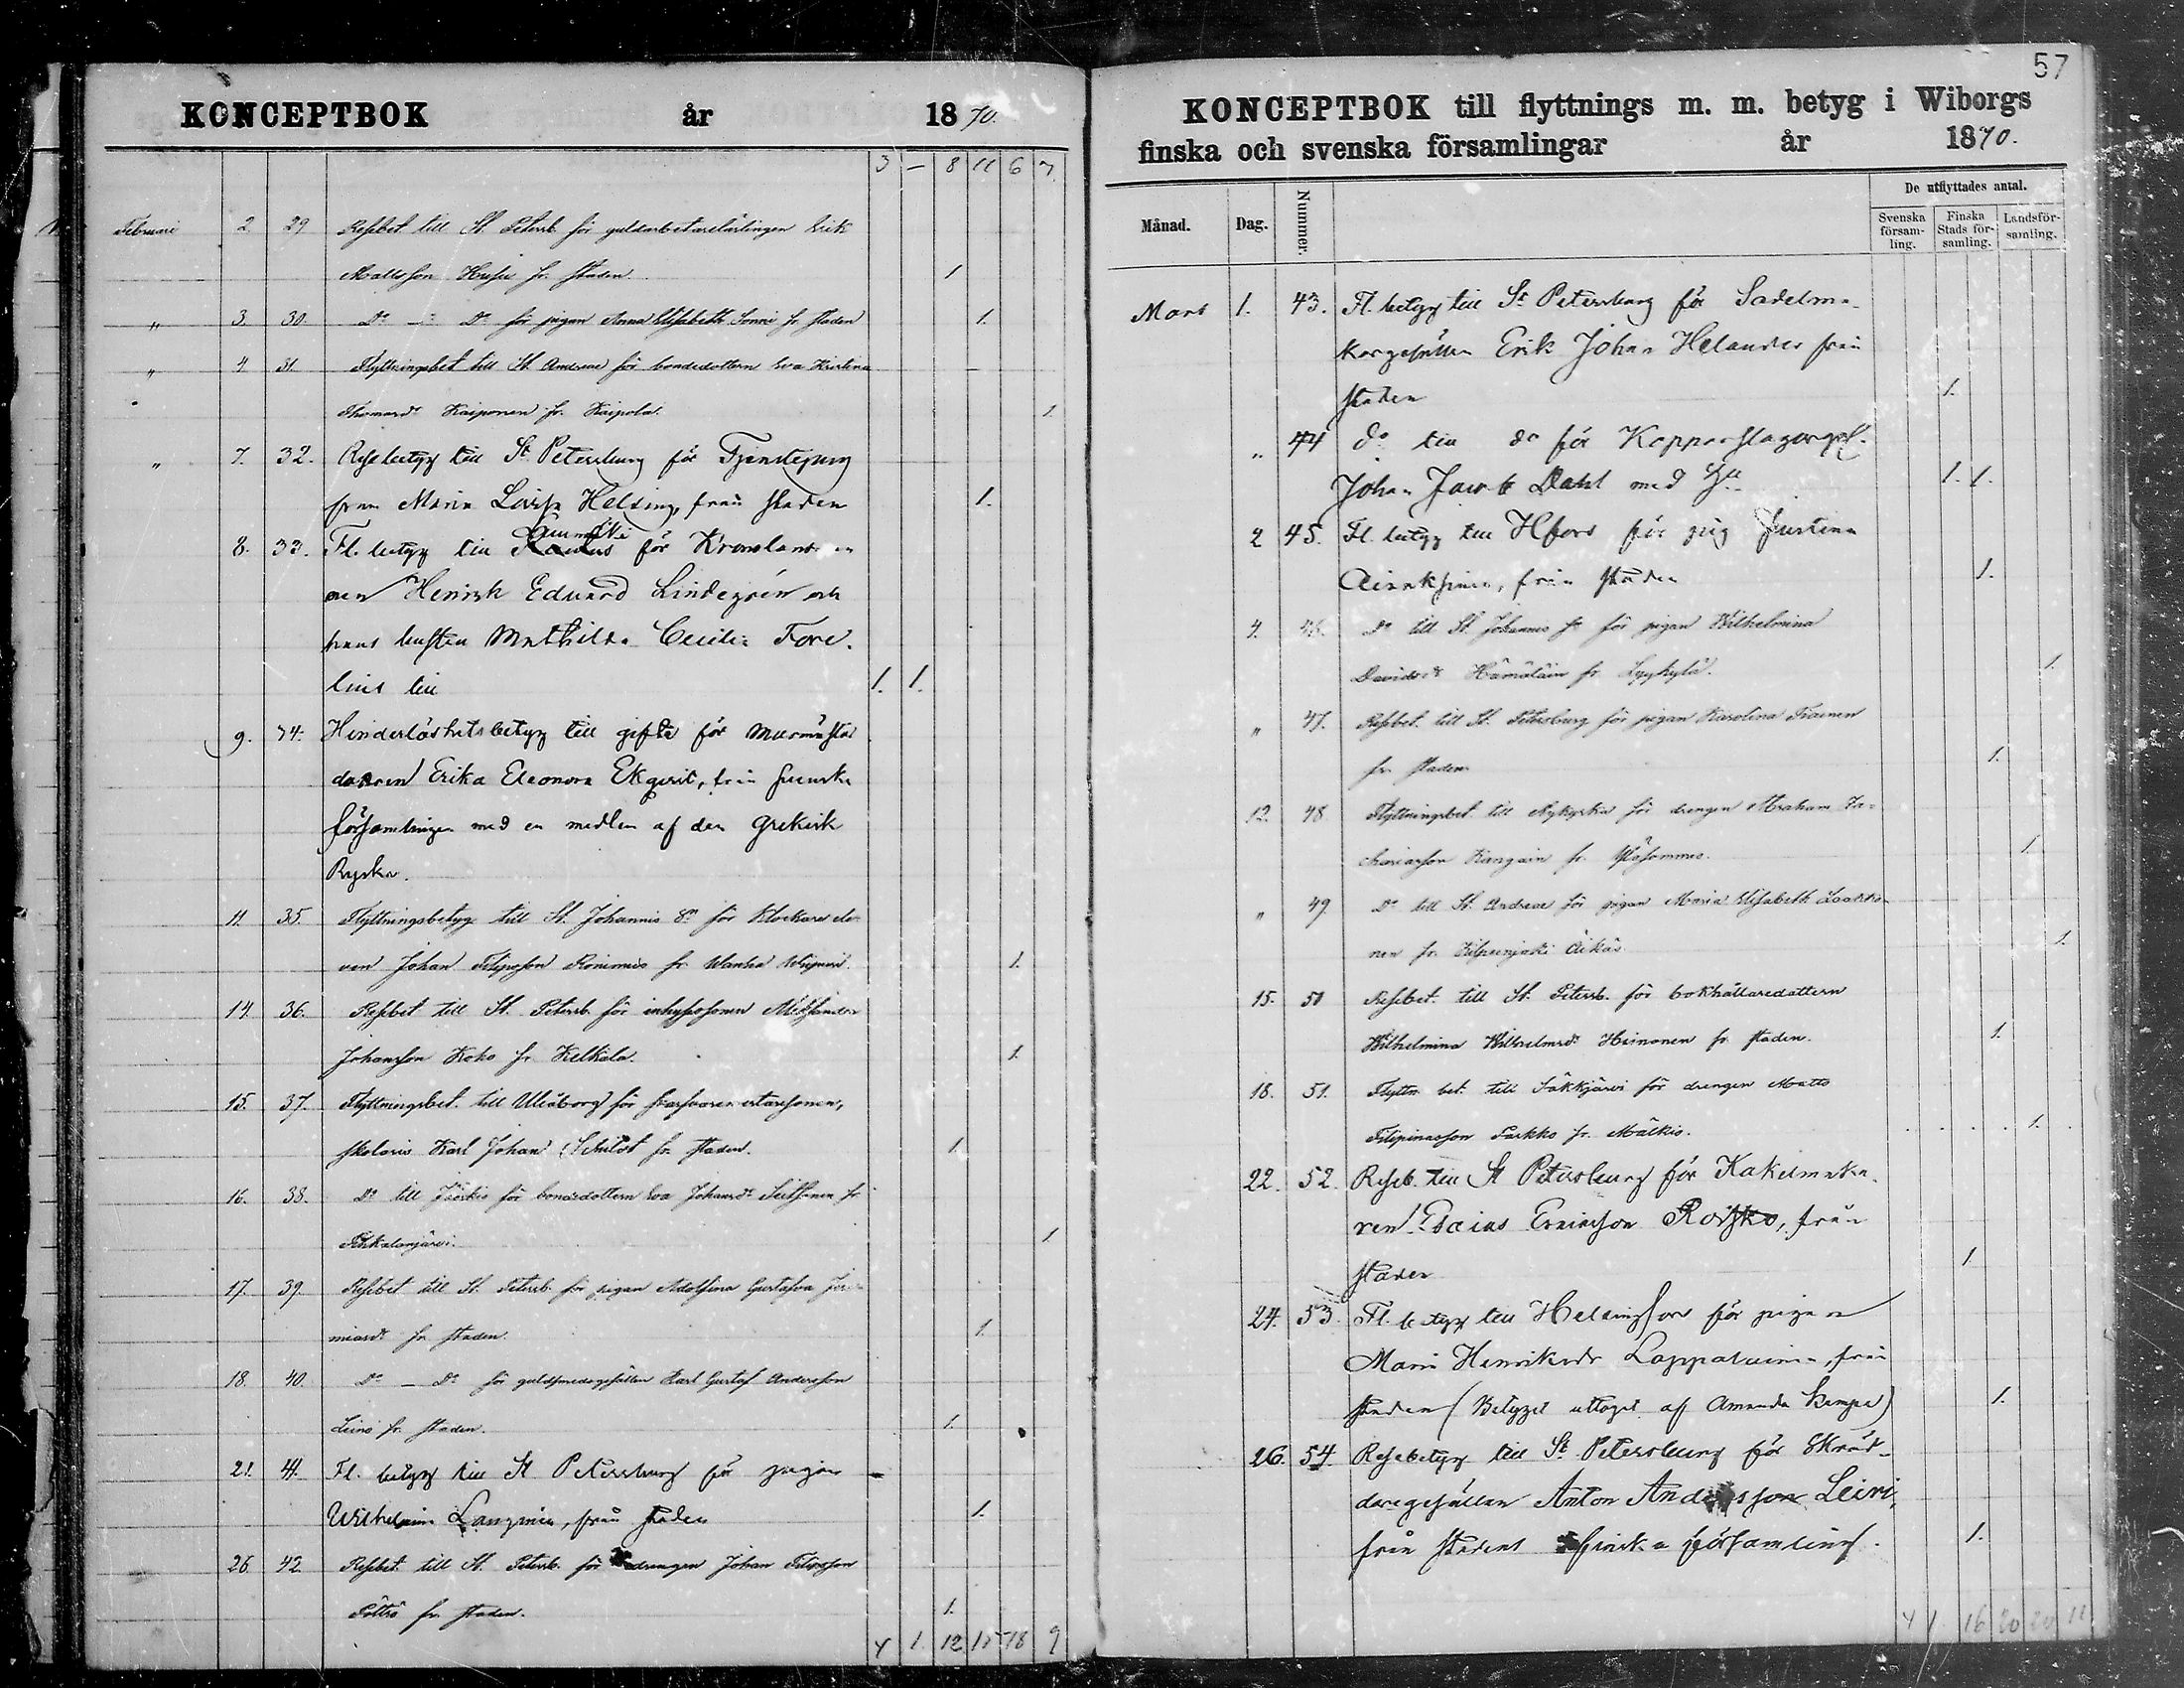 KONCEPTBOK år 1870.
3 - 8 11 6 7
Februari 2. 29 Resebet. till St. Petersb. för guldarbetarelärlingen Erik
Mattsson fr. staden. 1
„ 3. 30. Do - Do för pigan Anna Elisabeth Sonni fr. staden 1.
„ 4 31. Flyttningsbet till St. Andreae för bondedottern Eva Kristina
Thomasdr Kaiponen fr. Kaipola. 1.
„ 7. 32. Resebetyg till St. Petersburg för Tjenstejung
frun Maria Lovisa Helsing, från staden 1.
8. 33. Fl. betyg till för
nen Henrik Eduard Lindegrén och
hans hustru Mathilda Cecilia Fore-
lius till 1. 1.
9. 34. Hinderlöshetsbetyg till gifte för
Erika Eleonora Ekqvist, från svenska
församlingen med en medlem af den Grekisk
Ryska.
11. 35. Flyttningsbetyg till St. Johannis sn för Klockare ele-
ven Johan Filipsson Roinimus fr. Wanha 1.
14. 36. Resebet till St. Petersb. för inhysessonen Alexander
Johansson Koho fr. Kelkala. 1.
15. 37. Flyttningsbet. till Uleåborg för
skolaris Karl Johan Schildt fr. staden. 1.
16. 38. Do till Jääskis för bondedottern Eva Johansdr fr.
Pihkalanjärvi. 1
17. 39. Resebet till St. Petersb. för pigan Adolfina Gustafva Jere-
miasdr fr. staden. 1.
18. 40. Do - Do för guldsmedsgesällen Karl Gustaf Andersson
Leino fr. staden. 1.
21. 41. Fl. betyg till St Petersburg för pigan
Wilhelmina Langinen, från staden 1.
26. 42. Resebet. till St. Petersb. för drengen Johan Filipsson
Pöllö fr. staden. 1.
4 1. 12 15 18 9
57
KONCEPTBOK till flyttnings m. m. betyg i Wiborgs
finska och svenska församlingar år 1870.
Månad. Dag. Nummer. De utflyttades antal.
Svenska församling. Finska Stads församling. Landsförsamling.
Mars 1. 43. Fl. betyg till St Petersburg för Sadelma-
karegesällen Erik Johan Helander från
staden 1.
„ 44 do till do för Kopparslagargesl.
Johan Jacob Dahl med Hu 1. 1.
2 45. Fl. betyg till Hfors för pig Justina
Airaksinen, från staden 1.
4. 46. Do till St. Johannes sn för pigan Wilhelmina
Davidsdr Hämäläin fr. Lyykylä. 1.
„ 47. Resebet. till St. Petersburg för pigan Karolina Frainen
fr. staden. 1.
12. 48 Flyttningsbet. till Nykyrka för drengen Abraham Za-
chariasson Kangain fr. Yläsommee. 1.
„ 49 Do till St. Andreae för pigan Maria Elisabeth Laakko-
nen fr. Kilpeenjoki 1.
15. 50 Resebet. till St. Petersb. för bokhållaredottern
Wilhelmina Wilhelmsdr Heinonen fr. staden. 1.
18. 51. Flyttn. bet. till Säkkjärvi för drengen Matts
Filipinasson Parkko fr. Mälkis. 1.
22. 52. Reseb. till St Petersburg för Kakelmaka-
ren Esaias Ericsson Roisko, från
staden 1
24. 53. Fl. betyg till Helsingfors för pigan
Maria Henriksdr Lappalainen, från
staden (Betyget uttaget af Amanda Kempe) 1.
26. 54. Resebetyg till St. Petersburg för Skräd-
daregesällen Anton Andersson Leivi,
från stadens finska församling. 1.
4 1 16 20 20 11